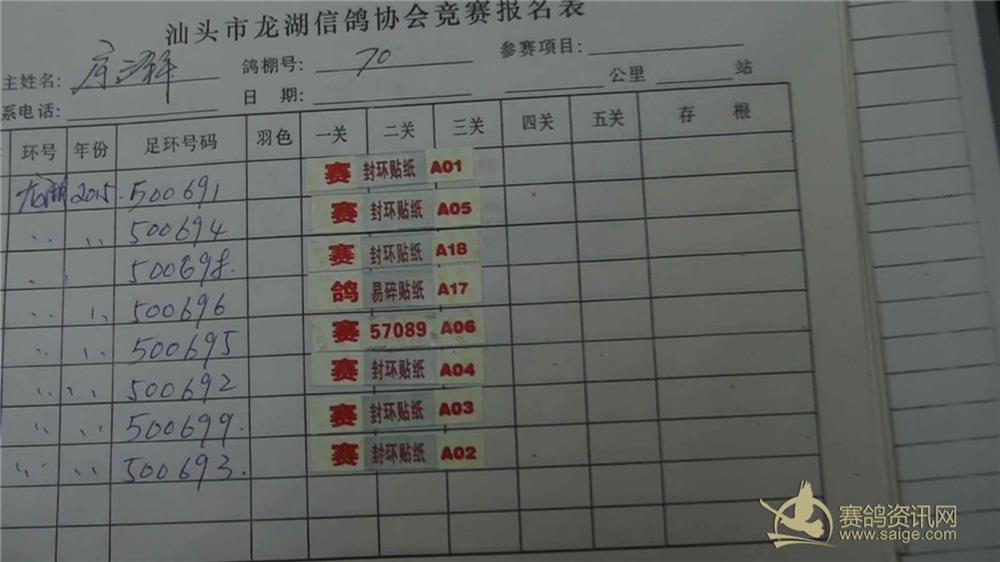 汕头市龙湖信鸽协会竞赛报名表
主姓名: 鸽棚号: 70 参赛项目:
系电话: 日 期: 公里 站
环号 年份 足环号码 羽色 一关 二关 三关 四关 五关 存 根
龙湖 2015. 500691 赛 封环贴纸 A01
〃 〃 500694 赛 封环贴纸 A05
500698. 赛 封环贴纸 A18
〃 〃 500696 鸽 易碎贴纸 A17
〃 〃 500695 赛 57089 A06
〃 〃 500692 赛 封环贴纸 A04
〃 〃 500699. 赛 封环贴纸 A03
〃 〃 500693. 赛 封环贴纸 A02
赛鸽资讯网
www.saige.com